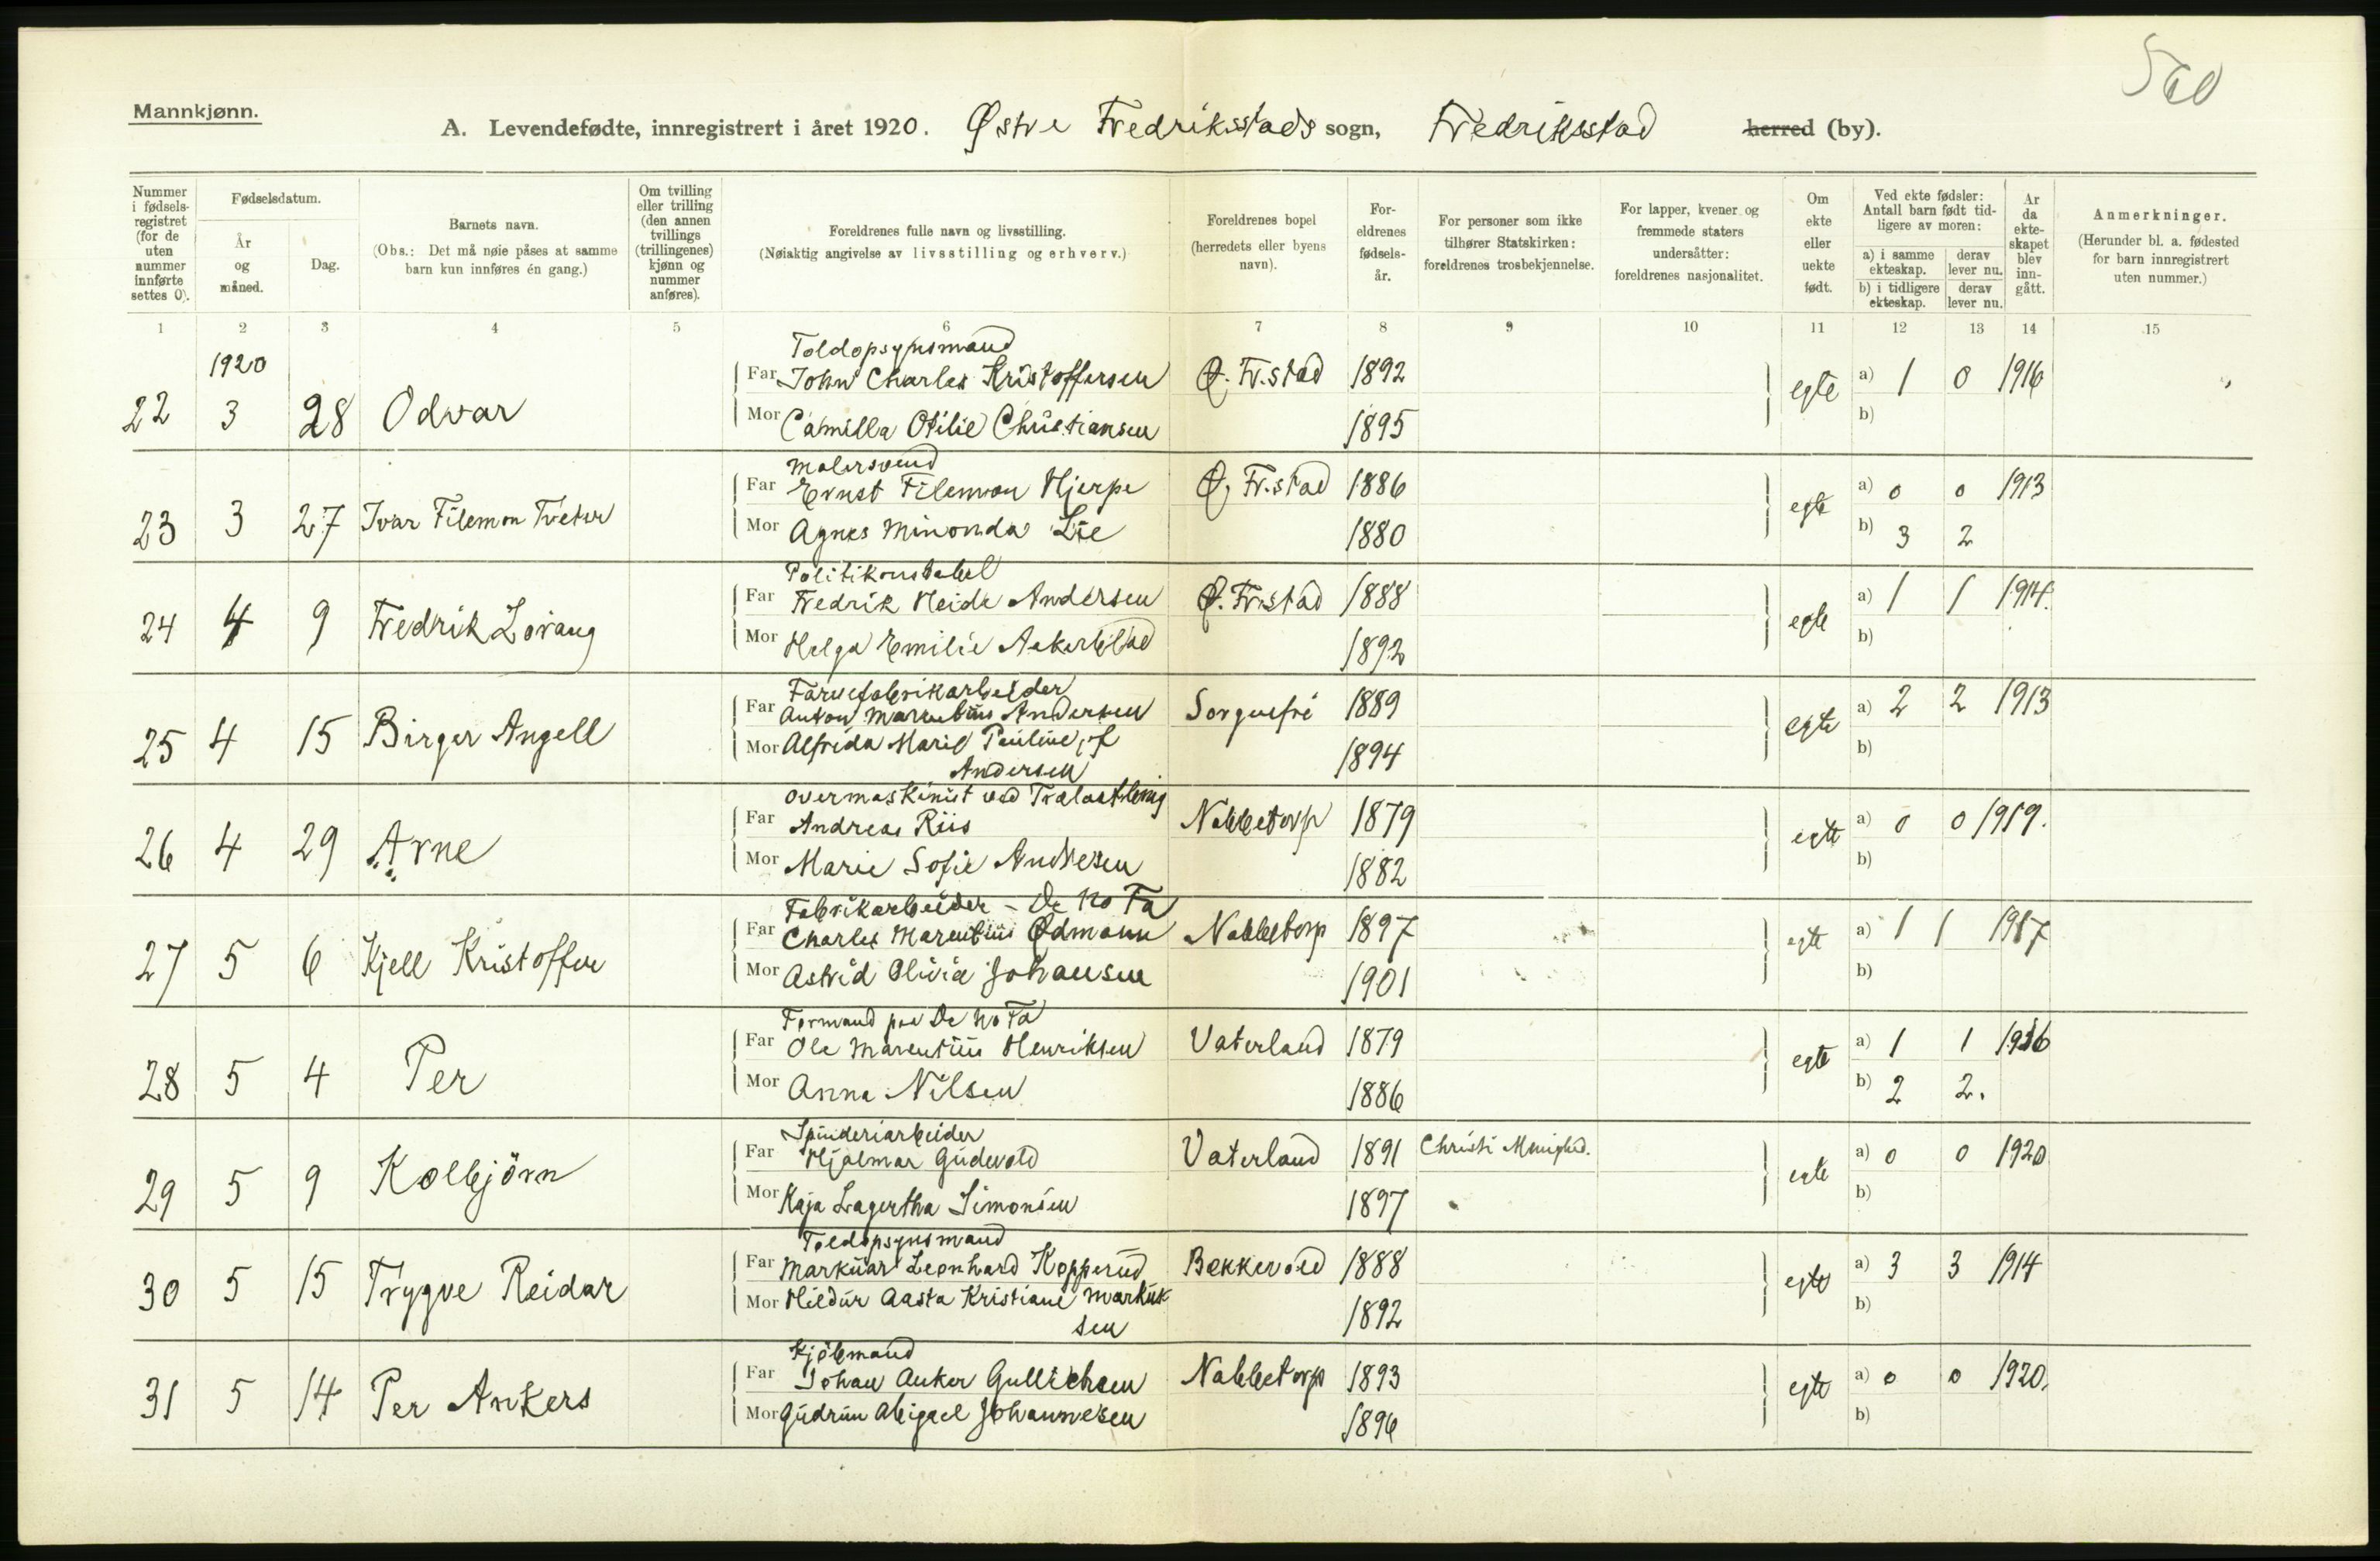 560
Mannkjønn.
A. Levendefødte, innregistrert i året 1920. Østre Fredriksstads sogn, Fredriksstad herred (by).
Nummer i fødsels-registret (for de uten nummer innførte settes 0).
Fødselsdatum.
År og måned.
Dag.
Barnets navn.
(Obs.: Det må nøie påses at samme barn kun innføres én gang.)
Om tvilling eller trilling (den annen tvillings (trillingenes) kjønn og nummer anføres).
Foreldrenes fulle navn og livsstilling.
(Nøiaktig angivelse av livsstilling og erhverv.)
Foreldrenes bopel (herredets eller byens navn).
For-eldrenes fødsels-år.
For personer som ikke tilhører Statskirken: foreldrenes trosbekjennelse.
For lapper, kvener og fremmede staters undersåtter: foreldrenes nasjonalitet.
Om ekte eller uekte født.
Ved ekte fødsler: Antall barn født tid-ligere av moren:
a) i samme ekteskap. derav lever nu.
b) i tidligere ekteskap. derav lever nu.
År da ekte-skapet blev inn-gått.
Anmerkninger.
(Herunder bl. a. fødested for barn innregistrert uten nummer.)
1 2 3 4 5 6 7 8 9 10 11 12 13 14 15
1920
Toldopsynsmand
22 3 28 Odvar Far John Charles Kristoffersen Ø. Fr.stad 1892 egte a) 1 0 1916
Mor Camilla Otilie Christiansen 1895 b)
Malersvend
23 3 27 Ivar Filemon Tveter Far Ernst Filemon Hjerpe Ø. Fr.stad 1886 egte a) 0 0 1913
Mor Agnes Minonda Lie 1880 b) 3 2
Politikonstabel
24 4 9 Fredrik Lovang Far Fredrik Heide Andersen Ø. Fr.stad 1888 egte a) 1 1 1914.
Mor Helga Emilie 1892 b)
Farvefabrikarbeider
25 4 15 Birger Angell Far Anton Marentius Andersen Sorgenfri 1889 egte a) 2 2 1913
Mor Alfrida Marie Pauline, f 1894 b)
Andersen
Overmaskinist ved
26 4 29 Arne Far Andreas Riis Nabbetorp 1879 egte a) 0 0 1919.
Mor Marie Sofie Andresen 1882 b)
Fabrikarbeider - De No Fa
27 5 6 Kjell Kristoffer Far Charles Marentius Ødmann Nabbetorp 1897 egte a) 1 1 1917
Mor Astrid Olivia Johansen 1901 b)
Formand paa De No Fa
28 5 4 Per Far Ole Marentius Henriksen Vaterland 1879 egte a) 1 1 1916
Mor Anna Nilsen 1886 b) 2 2.
Spinderiarbeider
29 5 9 Kolbjörn Far Hjalmar Gudevold Vaterland 1891 Christi Menighed. egte a) 0 0 1920
Mor Kaja Lagertha Simonsen 1897 b)
Toldopsynsmand
30 5 15 Trygve Reidar Far Markuar Leonhard Kopperud Bekkevold 1888 egte a) 3 3 1914
Mor Hildur Aasta Kristiane Markus 1892 b)
sen
Kjøbmand
31 5 14 Per Ankers Far Johan Anker Gullichsen Nabbetorp 1893 egte a) 0 0 1920.
Mor Gudrun Abigael Johannesen 1896 b)